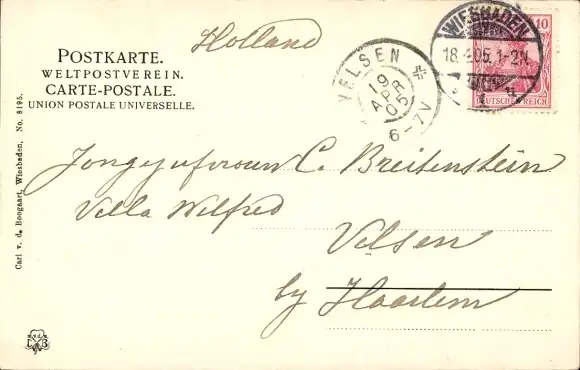 Holland
POSTKARTE.
WELTPOSTVEREIN.
CARTE-POSTALE.
UNION POSTALE UNIVERSELLE.
VELSEN
19
APR
05
6-7V
WIESBADEN
18.4.05. 1-2N.
1
10
DEUTSCHES REICH
Jongejufvrouw C. Breitenstein
Villa Wilfred
Velsen
by Haarlem
Carl v. d. Boogaart, Wiesbaden. No. 8195.